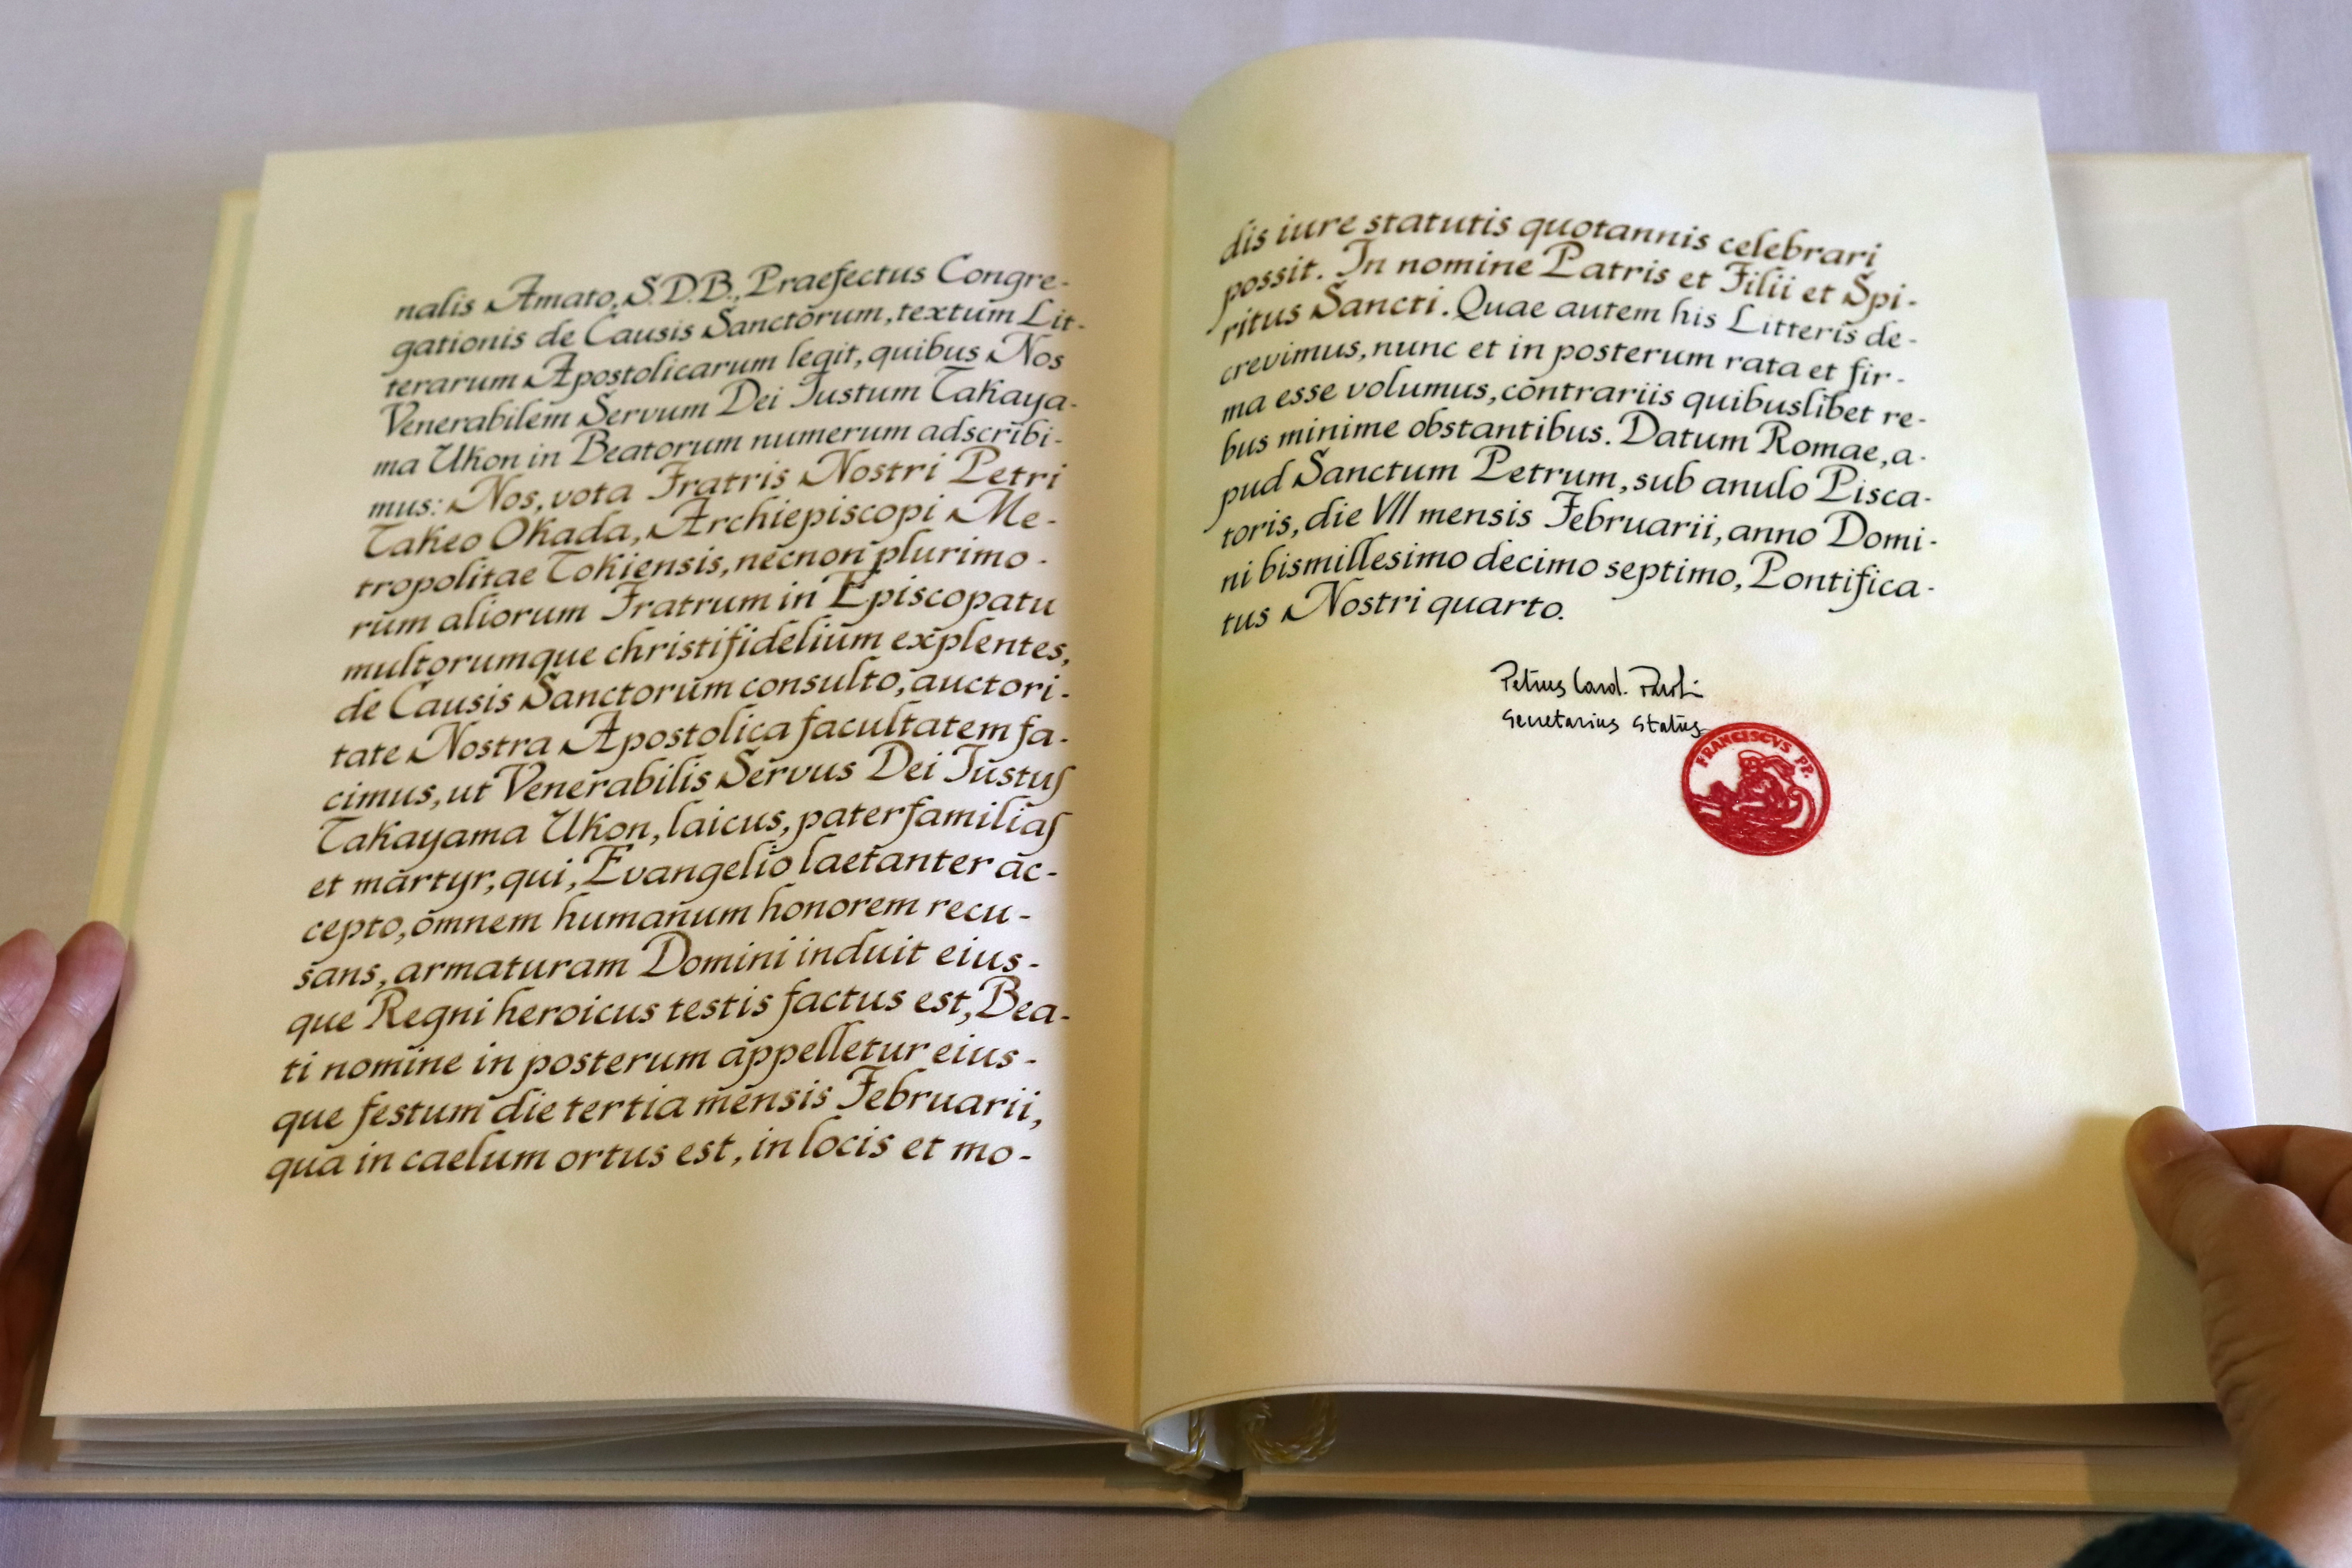 nalis Amato, S.D.B., Praefectus Congre-
gationis de Causis Sanctorum, textum Lit-
terarum Apostolicarum legit, quibus Nos
Venerabilem Servum Dei Iustum Takaya-
ma Ukon in Beatorum numerum adscribi-
mus: Nos, vota Fratris Nostri Petri
Takeo Okada, Archiepiscopi Me-
tropolitae Tokiensis, necnon plurimo-
rum aliorum Fratrum in Episcopatu
multorumque christifidelium explentes,
de Causis Sanctorum consulto, auctori-
tate Nostra Apostolica facultatem fa-
cimus, ut Venerabilis Servus Dei Iustus
Takayama Ukon, laicus, paterfamilias
et martyr, qui, Evangelio laetanter ac-
cepto, omnem humanum honorem recu-
sans, armaturam Domini induit eius-
que Regni heroicus testis factus est, Bea-
ti nomine in posterum appelletur eius-
que festum die tertia mensis Februarii,
qua in caelum ortus est, in locis et mo-
dis iure statutis quotannis celebrari
possit. In nomine Patris et Filii et Spi-
ritus Sancti. Quae autem his Litteris de-
crevimus, nunc et in posterum rata et fir-
ma esse volumus, contrariis quibuslibet re-
bus minime obstantibus. Datum Romae, a-
pud Sanctum Petrum, sub anulo Pisca-
toris, die VII mensis Februarii, anno Domi-
ni bismillesimo decimo septimo, Pontifica-
tus Nostri quarto.
Petrus Card. Parolin
Secretarius Status
FRANCISCVS PP.